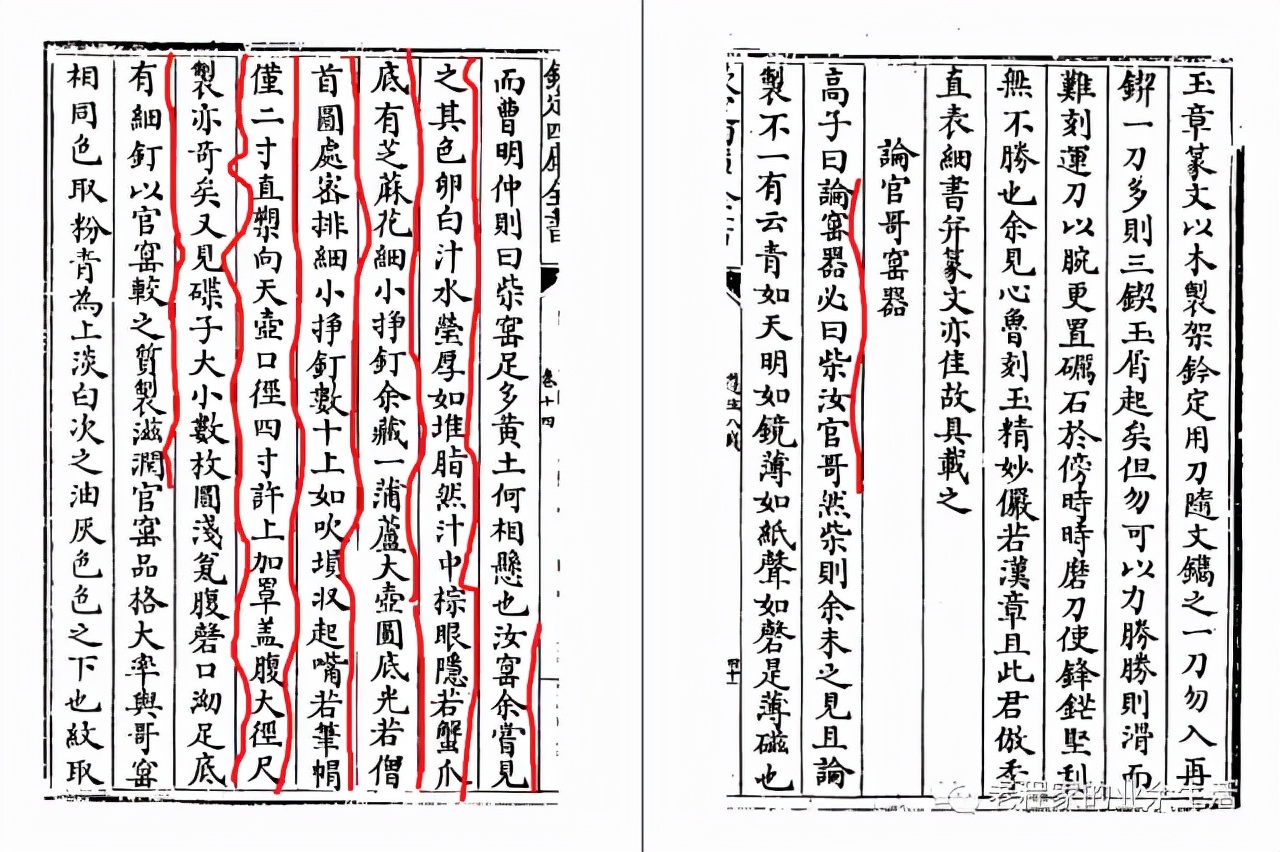 玉章篆文以木製架鈐定用刀隨文鐫之一刀勿入再
鍥一刀多則三鍥玉屑起矣但勿可以力勝勝則滑而
難刻運刀以腕更置礪石於傍時時磨刀使鋒鋩堅利
無不勝也余見心魯刻玉精妙儼若漢章且此君倣季
直表細書并篆文亦佳故具載之
論官哥窑器
高子曰論窑器必曰柴汝官哥然柴則余未之見且論
製不一有云青如天明如鏡薄如紙聲如磬是薄磁也
卷十四
四十
欽定四庫全書
卷十四
而曹明仲則曰柴窑足多黄土何相懸也汝窑余嘗見
之其色卵白汁水瑩厚如堆脂然汁中棕眼隱若蟹爪
底有芝蔴花細小掙釘余藏一蒲蘆大壺圓底光若僧
首圓處密排細小掙釘數十上如吹塤収起嘴若筆帽
僅二寸直槊向天壺口徑四寸許上加罩盖腹大徑尺
製亦竒矣又見碟子大小數枚圓淺瓮腹磬口泑足底
有細釘以官窑較之質製滋潤官窑品格大率與哥窑
相同色取粉青為上淡白次之油灰色色之下也紋取
老程家的业余生活